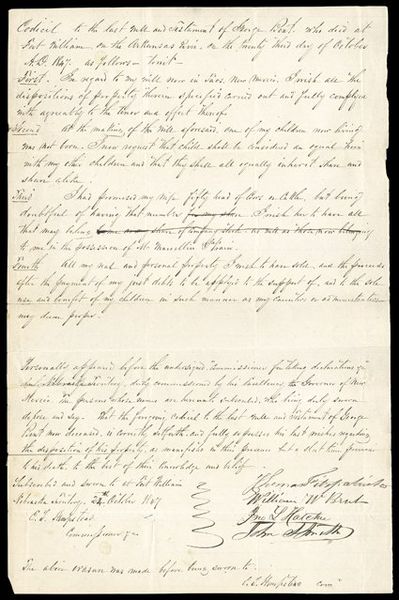 Codicil to the last will and testament of George Bent, who died at
Fort William, on the Arkansas River, on the twenty third day of October
A.D. 1847, as follows - towit -
First. In regard to my will now in Taos, New Mexico, I wish all the
dispositions of property therein specified carried out and fully complied
with agreeably to the tenor and effect thereof.
Second At the making of the will aforesaid, one of my children now living
was not born. I now request that child shall be considered an equal heir
with my other children and that they shall all equally inherit share and
share alike.
Third I had promised my wife fifty head of Cows or Cattle, but being
doubtful of having that number I wish her to have all
that may belong
to me in the possession of Mr Marcellin
Fourth All my real and personal property I wish to have sold, and the proceeds
after the payment of my just debts to be applied to the support of, and to the sole
use and benefit of my children in such manner as my executors or administrators
may deem proper.
Personally appeared before the undersigned Commissioner for taking declarations &c
Nebraska Territory, duly commissioned by his Excellency the Governor of New
Mexico The persons whose names are hereunto subscribed, who being duly sworn
depose and say. That the foregoing codicil to the last will and testament of George
Bent now deceased, is correctly set forth, and fully expresses his last wishes regarding
the disposition of his property, as manifested in their presence but a short time previous
to his death, to the best of their knowledge and belief.
Subscribed and sworn to at Fort William
Nebraska Territory, 24th October 1847
E. L. Hempstead
Commissioner &c
Thomas Fitzpatrick
William W Bent
Jno L Hatcher
John S Smith
The above erasure was made before being sworn to.
E. L. Hempstead Comr